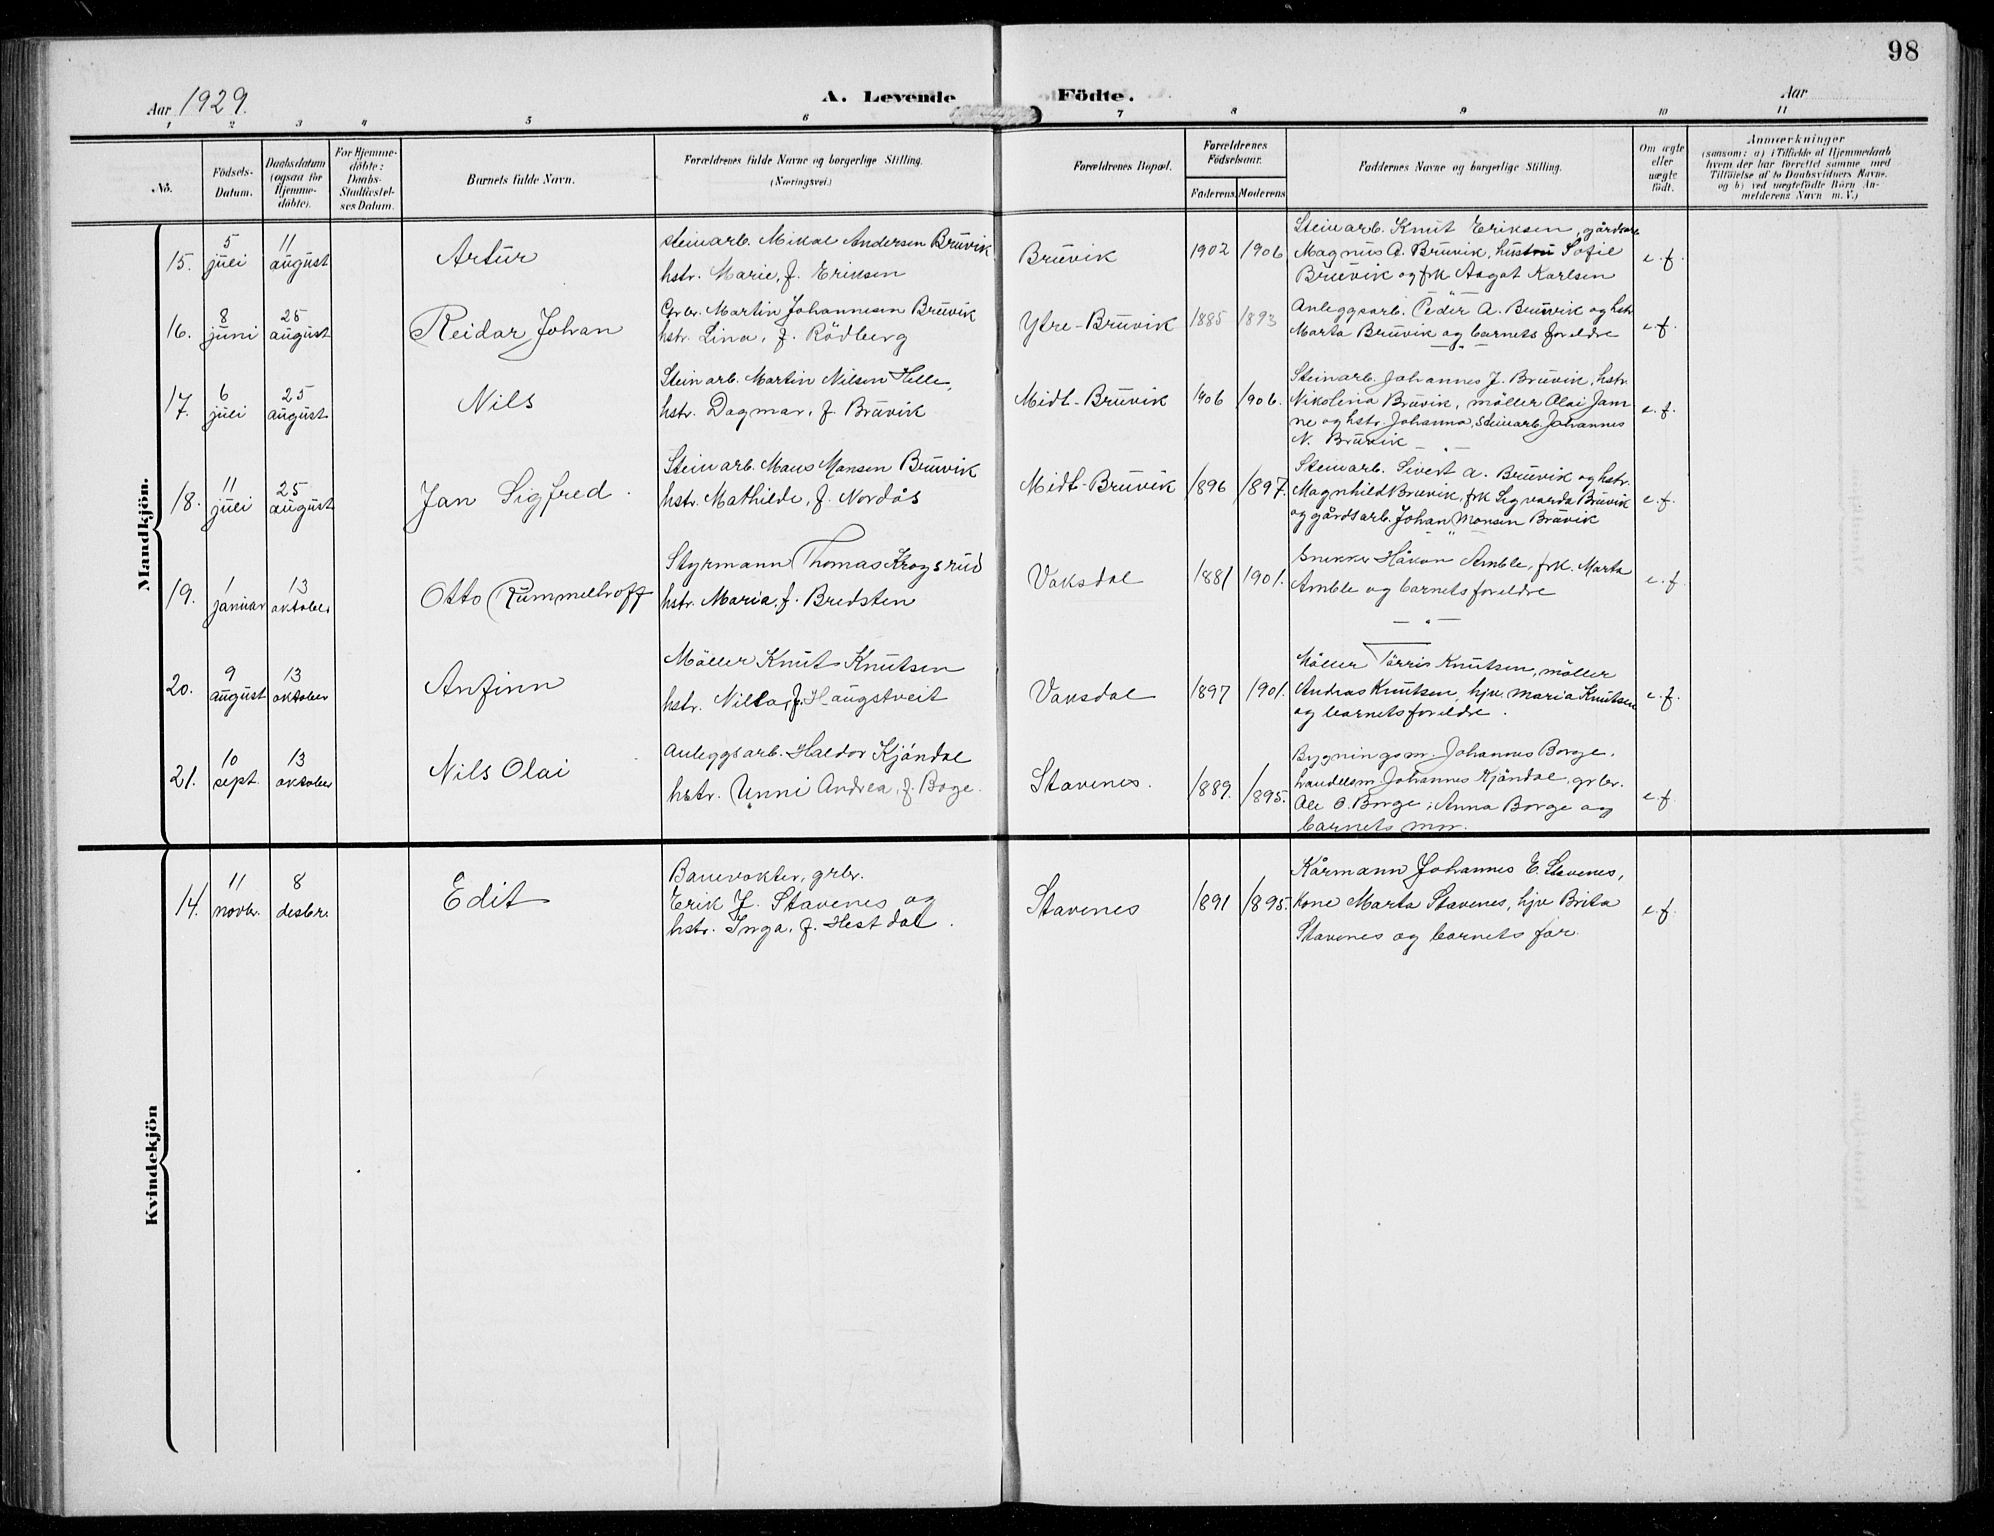 98
Aar 1929. A. Levende Födte. Aar
1 2 3 4 5 6 7 8 9 10 11
No. Födsels-Datum. Daabsdatum (ogsaa for Hjemme-döbte). For Hjemme-döbte: Daabs-Stadfæstel-ses Datum. Barnets fulde Navn. Forældrenes fulde Navne og borgerlige Stilling. (Næringsvei.) Forældrenes Bopæl. Forældrenes Födselsaar. Faderens. Moderens. Faddernes Navne og borgerlige Stilling. Om ægte eller uægte födt. Anmærkninger (saasom: a) i Tilfælde af Hjemmedaab hvem der har forrettet samme, med Tilföielse af to Daabsvidners Navne, og b) ved uægtefödte Börn An-melderens Navn m. V.)
Mandkjön.
15. 5 juli 11 august Artur steinarb. Mikal Andersen Bruvik
hstr. Marie, f. Eriksen Bruvik 1902 1906 Steinarb. Knut Eriksen, gårdsarb.
Magnus A. Bruvik, hustru Sofie
Bruvik og frk Aagot Karlsen e.f.
16. 8 juni 25 august Reidar Johan Grbr. Martin Johannesen Bruvik
hstr. Lina, f. Rödberg Ytre-Bruvik 1885 1893 Anleggsarb. Peder A. Bruvik og hstr
Marta Bruvik og barnets foreldre e.f.
17. 6 juli 25 august Nils Steinarb. Martin Nilsen Helle,
hstr. Dagmar, f. Bruvik Midt-Bruvik 1906 1906. Steinarb. Johannes J. Bruvik, hstr.
Nikolina Bruvik, möller Olai Jam-
ne og hstr. Johanna, steinarb. Johannes
N. Bruvik e.f.
18. 11 juli 25 august Jan Sigfred. Steinarb. Mons Monsen Bruvik
hstr. Mathilde, f. Nordås Midt-Bruvik 1896 1897. Steinarb. Sivert A. Bruvik og hstr.
Magnhild Bruvik, frk Sigvarda Bruvik
og gårdsarb. Johan Monsen Bruvik e.f.
19. 1 januar 13 oktober Otto Rummelhoff Styrmann Thomas Krogsrud
hstr. Maria, f. Bredsten Vaksdal 1881 1901. Snekker Håkon Amble, frk. Marta
Amble og barnets foreldre e.f.
20. 9 august 13 oktober Anfinn Möller Knut Knutsen
hstr. Nilla, f. Haugstveit Vaksdal 1897 1901. Möller Törris Knutsen, möller
Andras Knutsen, hjv. Maria Knutsen
og barnets foreldre. e.f.
21. 10 sept. 13 oktober Nils Olai Anleggsarb. Haldor Kjöndal
hstr. Unni Andrea, f. Boge. Stavenes. 1889. 1895. Bygningsm. Johannes Borge,
handelsm. Johannes Kjöndal, grbr.
Ole O. Borge, Anna Borge og
barnets mor. e.f.
Kvindekjön
14. 11 novbr. 8 desbr. Edit Banevokter, grbr.
Erik J. Stavenes og
hstr. Inga, f. Hestdal. Stavenes 1891 1895. Kårmann Johannes E. Stavenes,
kone Marta Stavenes, hjv Brita
Stavenes og barnets far. e.f.